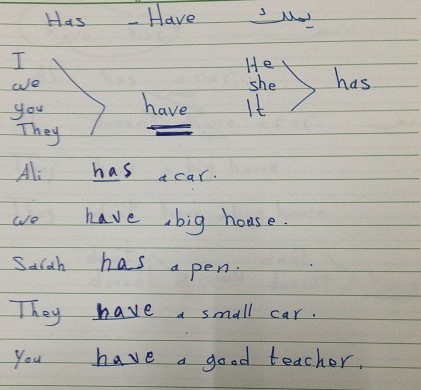 Has - Have يملك
I
we
you
They
have
He
she
It
has
Ali has a car.
we have a big house.
Sarah has a pen.
They have a small car.
You have a good teacher.